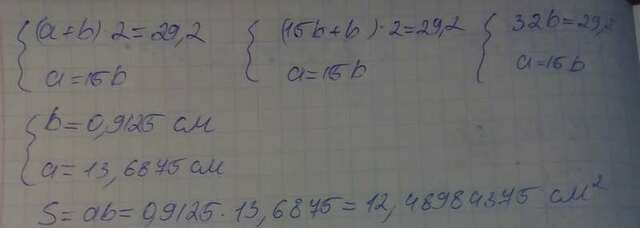 {(a+b)·2=29,2 {(15b+b)·2=29,2 {32b=29,2
a=15b a=15b a=15b
{b=0,9125 см
a=13,6875 см
S=ab=0,9125·13,6875=12,48984375 см²